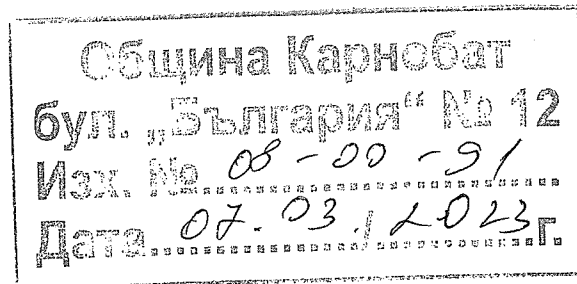 Община Карнобат
бул. „България“ № 12
Изх. № 08-00-91
Дата 07.03./2023г.